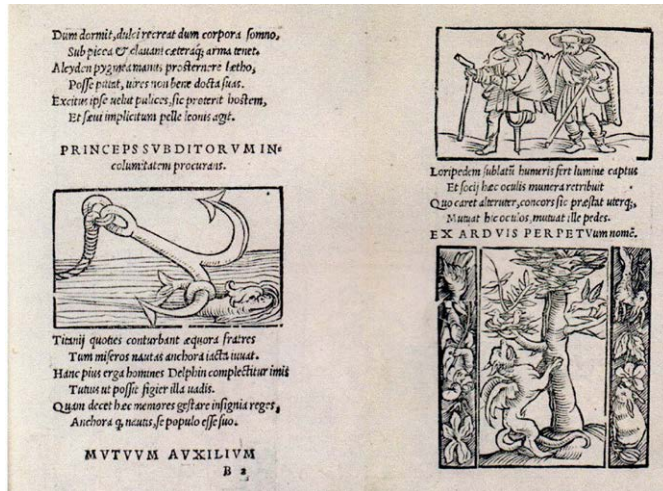 Dum dormit, dulci recreat dum corpora somno,
Sub picea & clauam cæteraq; arma tenet.
Alcyden pygmæa manus prosternere lætho,
Posse putat, uires non bene docta suas.
Excitus ipse uelut pulices, sic proterit hostem,
Et sæui implicitum pelle leonis agit.
PRINCEPS SVBDITORVM IN=
columitatem procurans.
Titanij quoties conturbant æquora fratres
Tum miseros nautas anchora iacta iuuat.
Hanc pius erga homines Delphin complectitur imis
Tutius ut possit figier illa uadis.
Quam decet hæc memores gestare insignia reges,
Anchora q, nautis, se populo esse suo.
MVTVVM AVXILIVM
B 2
Loripedem sublatũ humeris fert lumine captus
Et socij hæc oculis munera retribuit
Quo caret alteruter, concors sic præstat uterq;,
Mutuat hic oculos, mutuat ille pedes.
EX ARDVIS PERPETVum nomẽ.